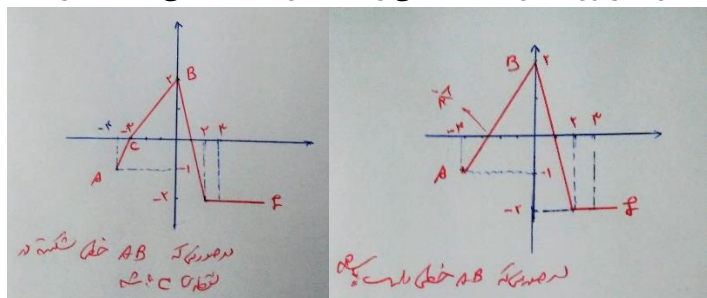 ۲ B
۲ ۳
C
A -1
-۲ f
در صورتی که AB خطی شکسته در
نقطه C باشد
B ۲
۲ ۳
A -1
-۲ f
در صورتی که AB خطی راست باشد